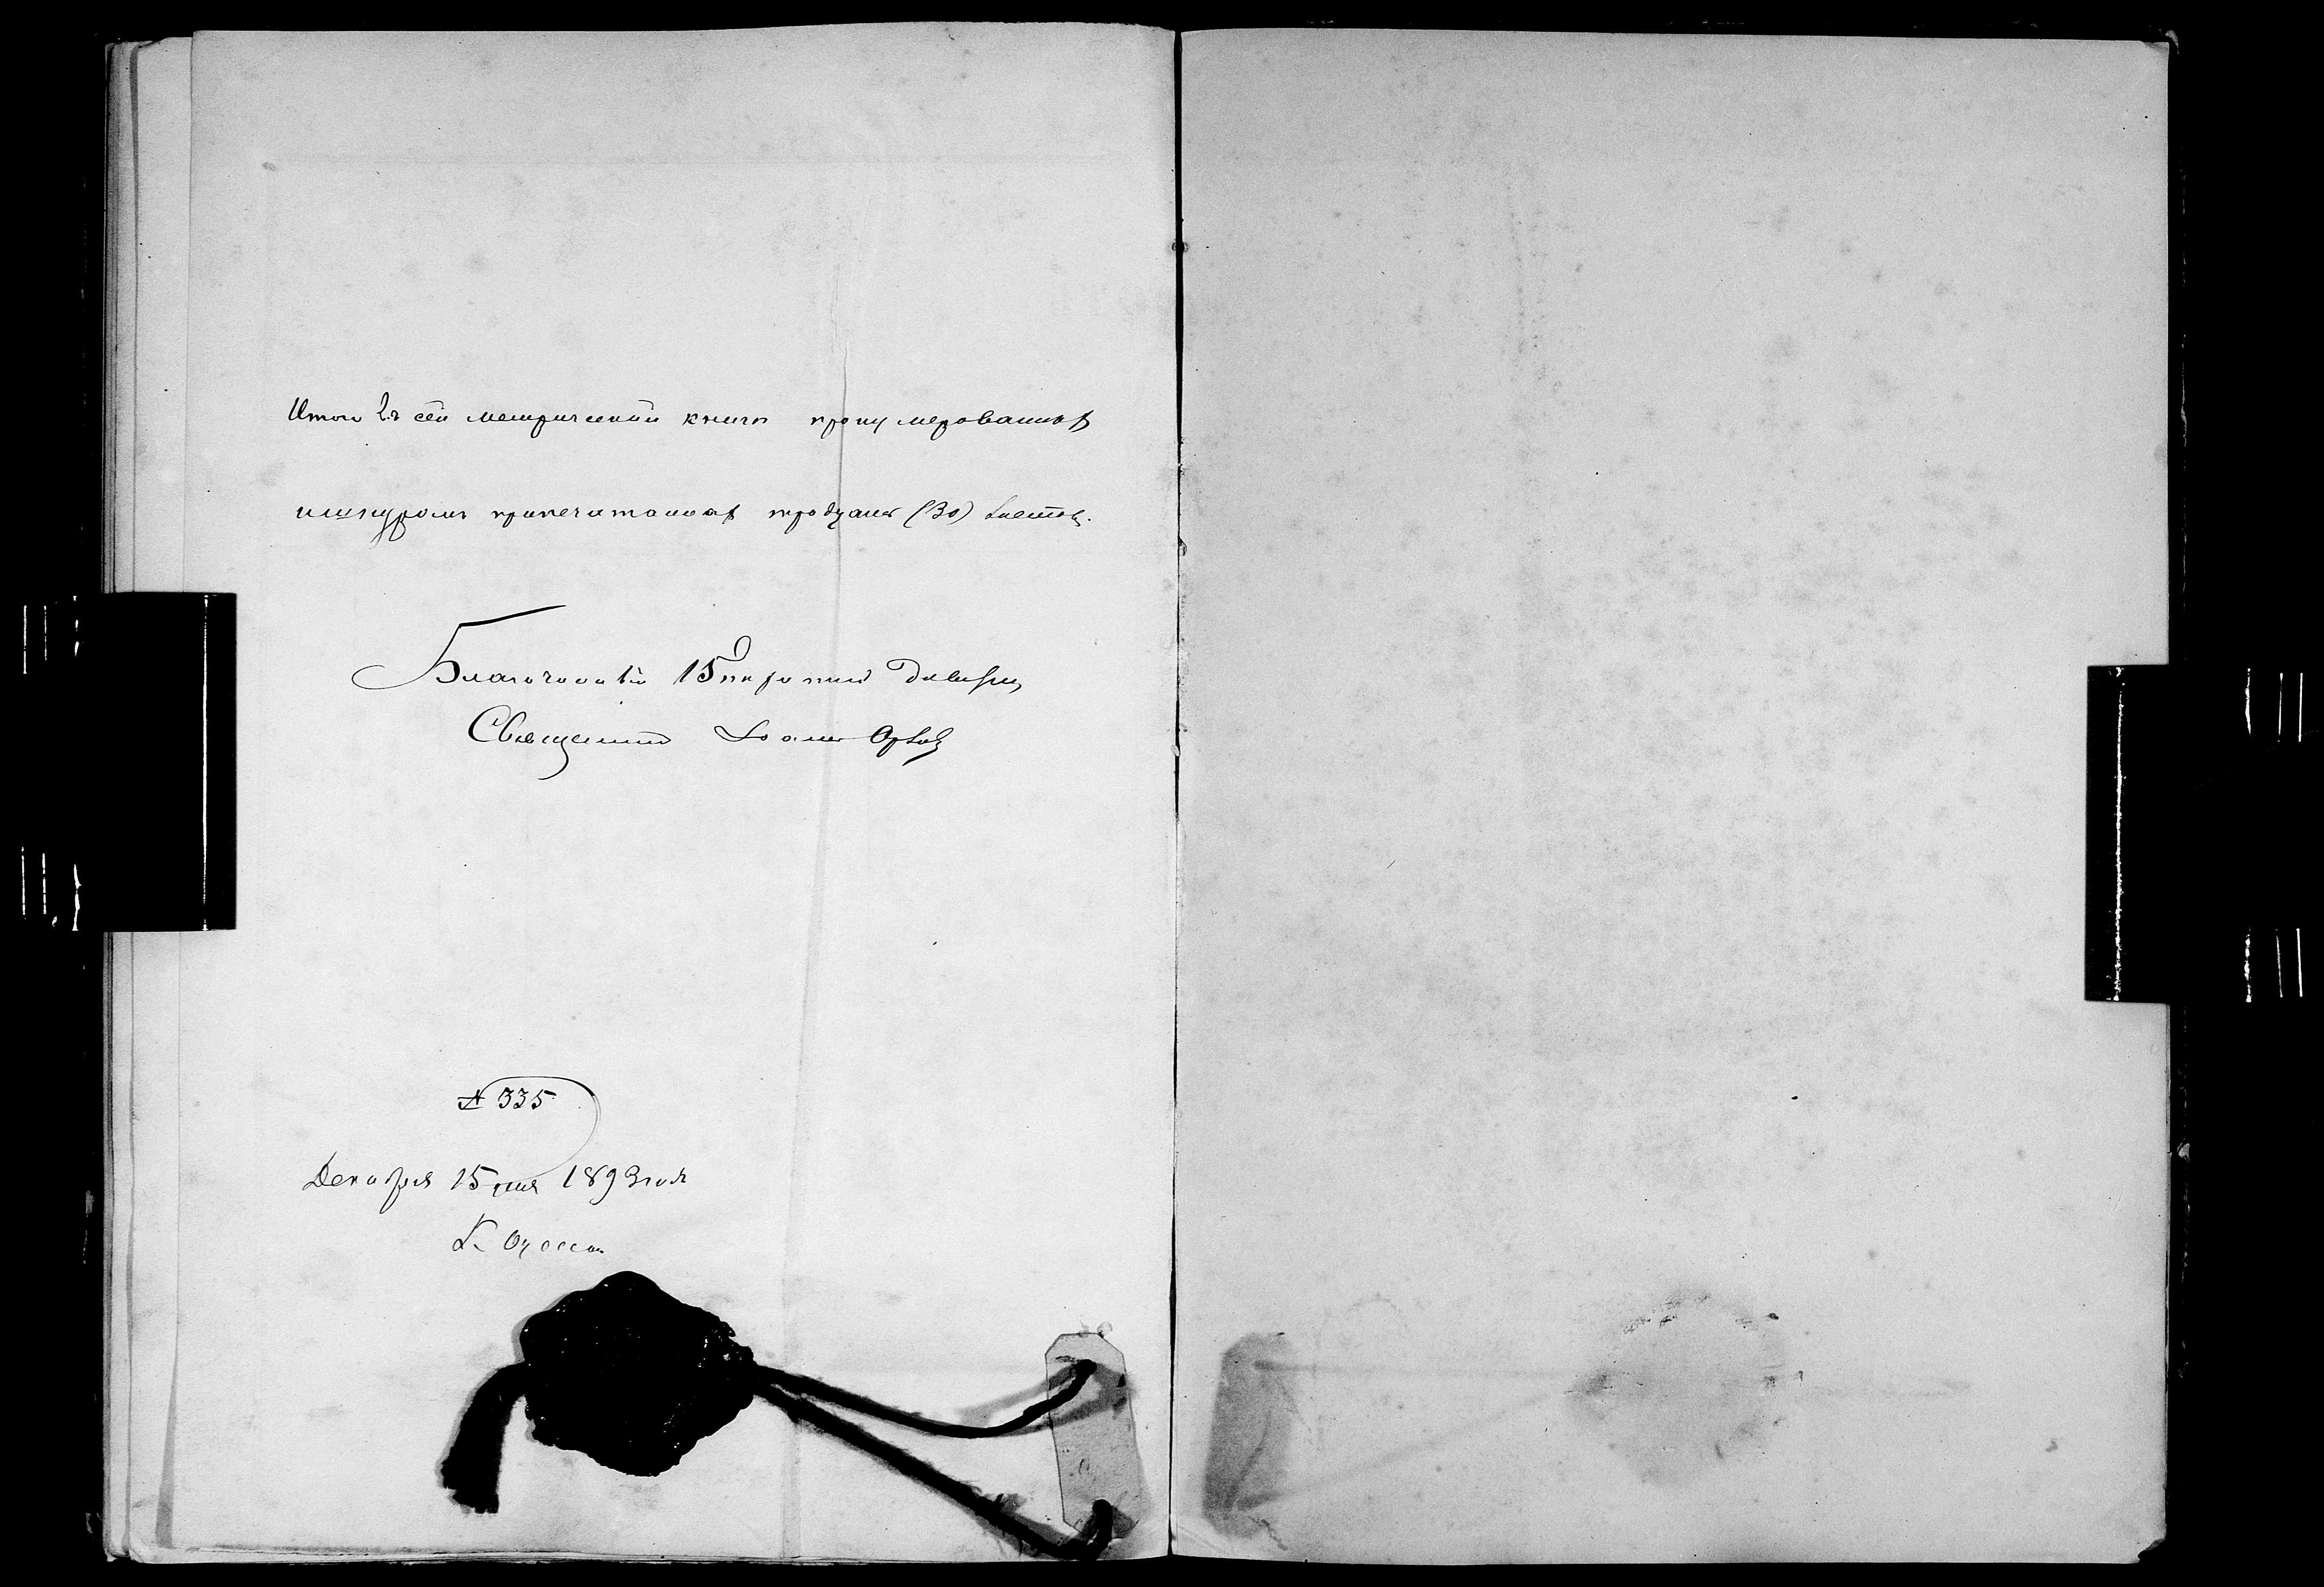 Итого въ сей метрической книгѣ пронумерованныхъ
и шнуромъ припечатанныхъ тридцать (30) листовъ.
Благочинный 15й пѣхотной дивизіи
Священникъ Іоаннъ Орловъ
№ 335
Декабря 15 дня 1893 года
Г. Одесса